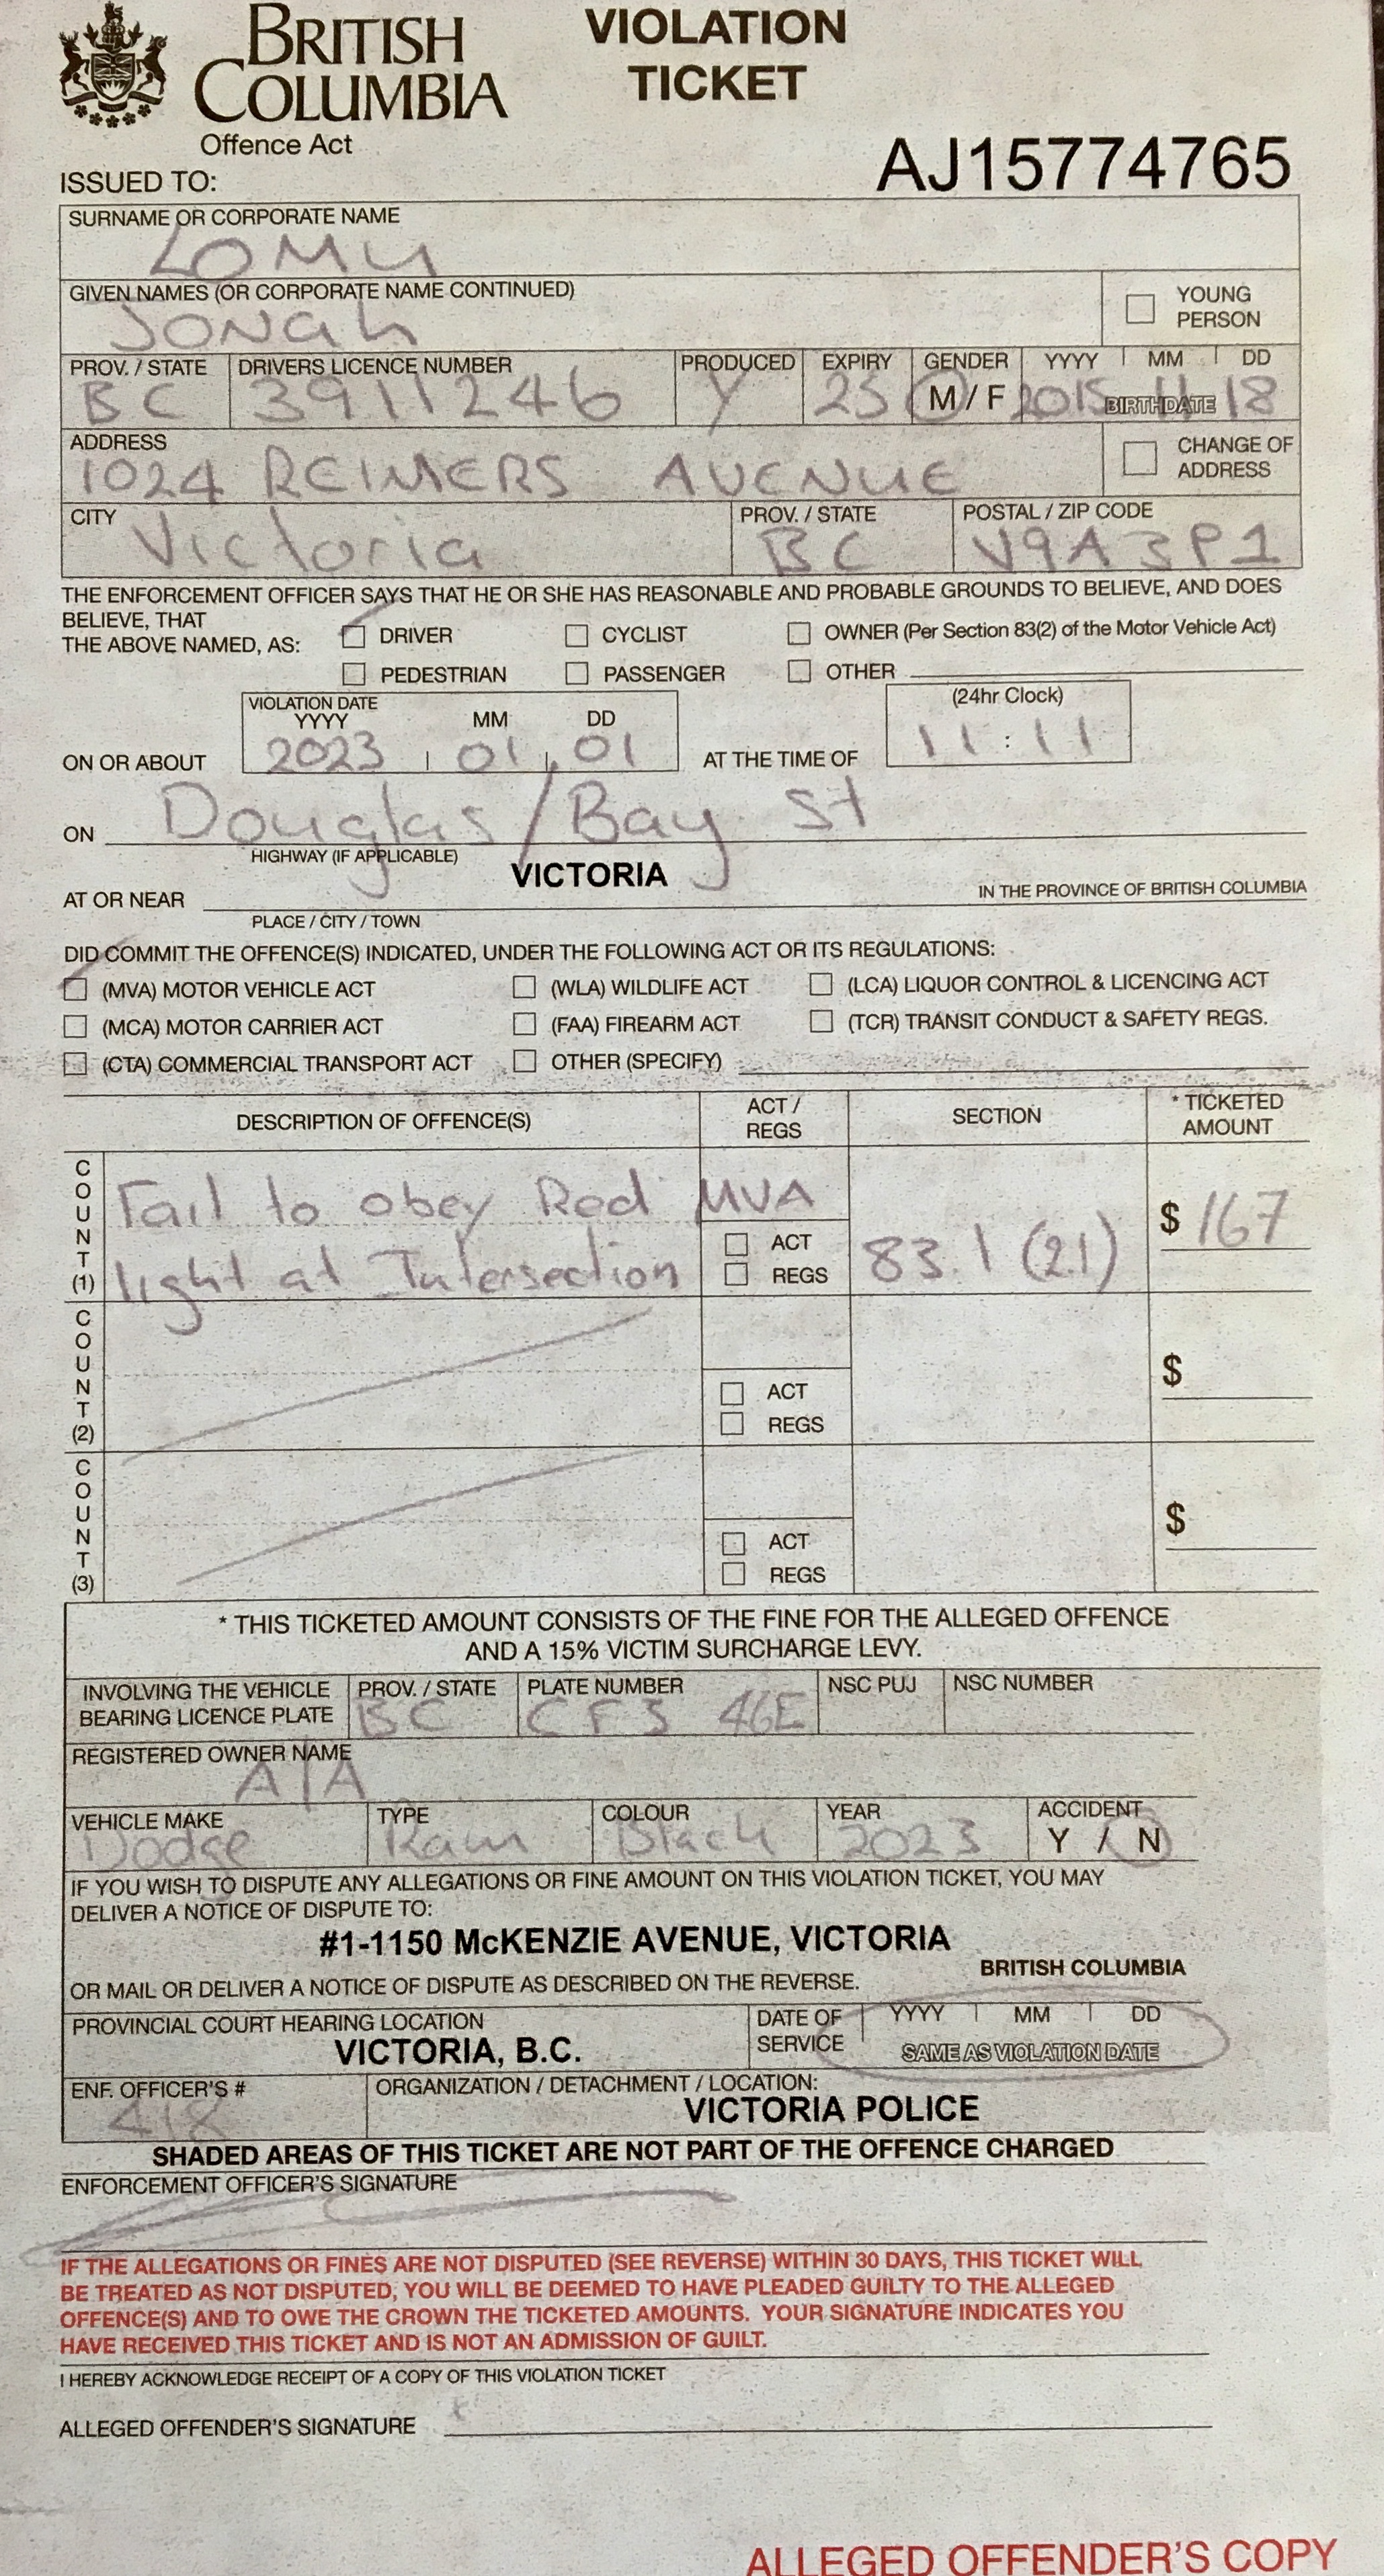 BRITISH
COLUMBIA
Offence Act
VIOLATION
TICKET
AJ15774765
ISSUED TO:
SURNAME OR CORPORATE NAME
LOMU
GIVEN NAMES (OR CORPORATE NAME CONTINUED)
JONah
YOUNG
PERSON
PROV. / STATE DRIVERS LICENCE NUMBER PRODUCED EXPIRY GENDER YYYY MM DD
BC 3911246 Y 25 M / F 2015 11 18
BIRTHDATE
ADDRESS
1024 REIMERS AVENUE
CHANGE OF
ADDRESS
CITY PROV. / STATE POSTAL / ZIP CODE
Victoria BC V9A 3P1
THE ENFORCEMENT OFFICER SAYS THAT HE OR SHE HAS REASONABLE AND PROBABLE GROUNDS TO BELIEVE, AND DOES
BELIEVE, THAT
THE ABOVE NAMED, AS: DRIVER CYCLIST OWNER (Per Section 83(2) of the Motor Vehicle Act)
PEDESTRIAN PASSENGER OTHER
VIOLATION DATE
YYYY MM DD
(24hr Clock)
ON OR ABOUT 2023 01 01 AT THE TIME OF 11:11
ON Douglas / Bay St
HIGHWAY (IF APPLICABLE)
AT OR NEAR VICTORIA IN THE PROVINCE OF BRITISH COLUMBIA
PLACE / CITY / TOWN
DID COMMIT THE OFFENCE(S) INDICATED, UNDER THE FOLLOWING ACT OR ITS REGULATIONS:
(MVA) MOTOR VEHICLE ACT (WLA) WILDLIFE ACT (LCA) LIQUOR CONTROL & LICENCING ACT
(MCA) MOTOR CARRIER ACT (FAA) FIREARM ACT (TCR) TRANSIT CONDUCT & SAFETY REGS.
(CTA) COMMERCIAL TRANSPORT ACT OTHER (SPECIFY)
DESCRIPTION OF OFFENCE(S) ACT / REGS SECTION * TICKETED AMOUNT
COUNT (1)
Fail to obey Red MVA
light at Intersection
ACT
REGS
83.1 (2.1)
$ 167
COUNT (2)
ACT
REGS
$
COUNT (3)
ACT
REGS
$
* THIS TICKETED AMOUNT CONSISTS OF THE FINE FOR THE ALLEGED OFFENCE
AND A 15% VICTIM SURCHARGE LEVY.
INVOLVING THE VEHICLE
BEARING LICENCE PLATE
PROV. / STATE PLATE NUMBER NSC PUJ NSC NUMBER
BC 46E
REGISTERED OWNER NAME
A/A
VEHICLE MAKE TYPE COLOUR YEAR ACCIDENT
Dodge Ram Black 2023 Y / N
IF YOU WISH TO DISPUTE ANY ALLEGATIONS OR FINE AMOUNT ON THIS VIOLATION TICKET, YOU MAY
DELIVER A NOTICE OF DISPUTE TO:
#1-1150 McKENZIE AVENUE, VICTORIA
BRITISH COLUMBIA
OR MAIL OR DELIVER A NOTICE OF DISPUTE AS DESCRIBED ON THE REVERSE.
PROVINCIAL COURT HEARING LOCATION
VICTORIA, B.C.
DATE OF
SERVICE
YYYY MM DD
SAME AS VIOLATION DATE
ENF. OFFICER'S #
418
ORGANIZATION / DETACHMENT / LOCATION:
VICTORIA POLICE
SHADED AREAS OF THIS TICKET ARE NOT PART OF THE OFFENCE CHARGED
ENFORCEMENT OFFICER'S SIGNATURE
IF THE ALLEGATIONS OR FINES ARE NOT DISPUTED (SEE REVERSE) WITHIN 30 DAYS, THIS TICKET WILL
BE TREATED AS NOT DISPUTED, YOU WILL BE DEEMED TO HAVE PLEADED GUILTY TO THE ALLEGED
OFFENCE(S) AND TO OWE THE CROWN THE TICKETED AMOUNTS. YOUR SIGNATURE INDICATES YOU
HAVE RECEIVED THIS TICKET AND IS NOT AN ADMISSION OF GUILT.
I HEREBY ACKNOWLEDGE RECEIPT OF A COPY OF THIS VIOLATION TICKET
ALLEGED OFFENDER'S SIGNATURE
ALLEGED OFFENDER'S COPY